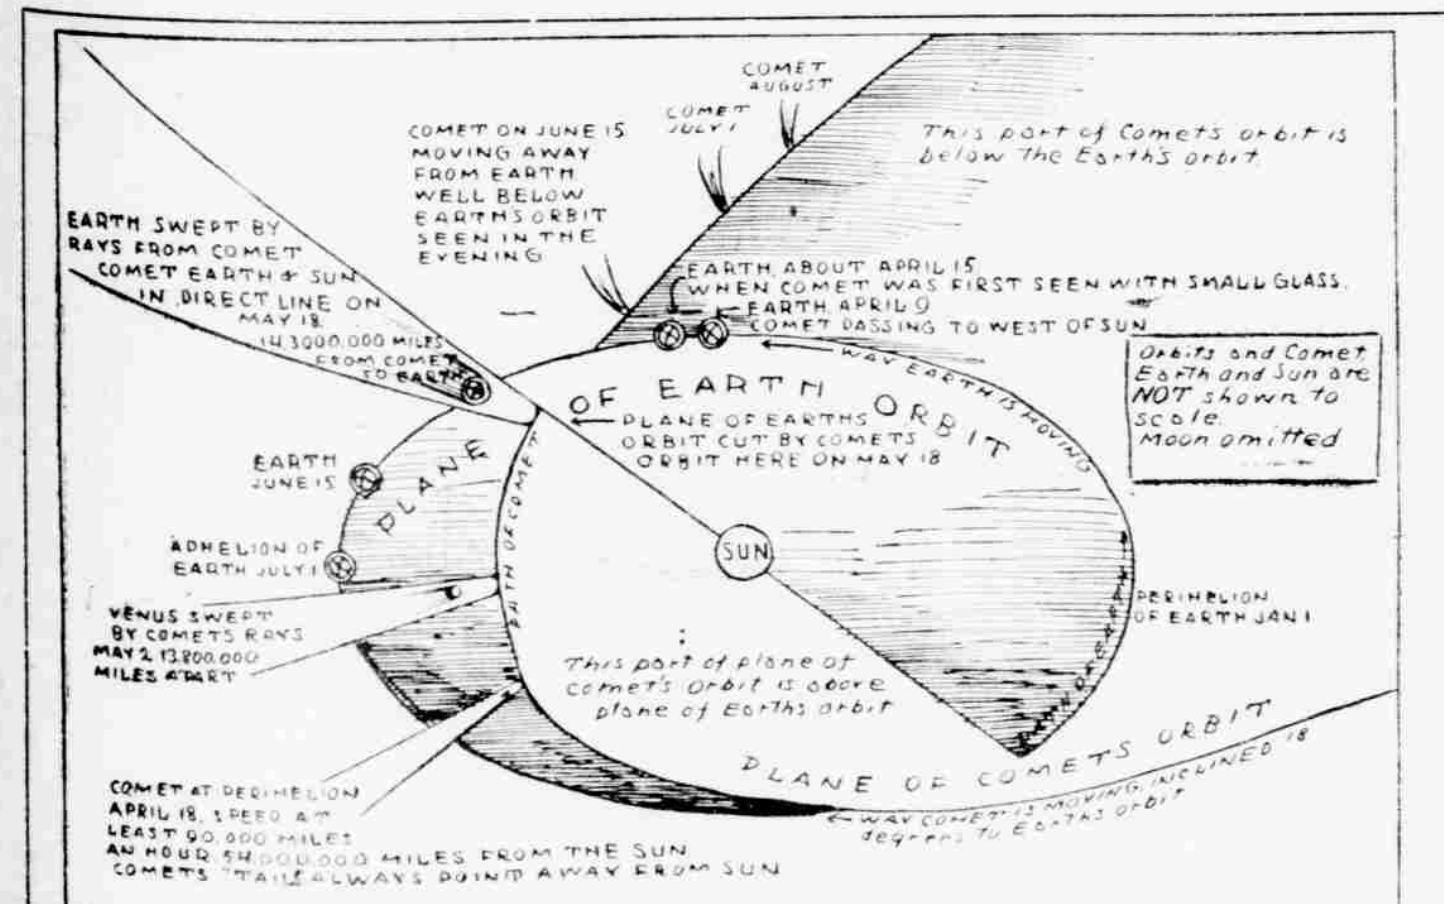 COMET
AUGUST
COMET
JULY 1
COMET ON JUNE 15
MOVING AWAY
FROM EARTH
WELL BELOW
EARTHS ORBIT
SEEN IN THE
EVENING
This part of Comets orbit is
below The Earth's orbit
EARTH SWEPT BY
RAYS FROM COMET
COMET EARTH & SUN
IN DIRECT LINE ON
MAY 18
14,3000.000 MILES
FROM COMET
TO EARTH
EARTH, ABOUT APRIL 15
WHEN COMET WAS FIRST SEEN WITH SMALL GLASS.
EARTH, APRIL 9
COMET PASSING TO WEST OF SUN
WAY EARTH IS MOVING
Orbits and Comet
Earth and Sun are
NOT shown to
scale.
Moon omitted
PLANE OF EARTH ORBIT
PLANE OF EARTHS
ORBIT CUT BY COMETS
ORBIT HERE ON MAY 18
EARTH
JUNE 15
PATH OF COMET
SUN
APHELION OF
EARTH JULY 1
PERIHELION
OF EARTH JAN 1
PATH OF EARTH
VENUS SWEPT
BY COMETS RAYS
MAY 2 13.800.000
MILES APART
This part of plane of
Comet's Orbit is above
plane of Earths orbit
PLANE OF COMETS ORBIT
WAY COMET IS MOVING, INCLINED 18
degrees TO EARTHS ORBIT
COMET AT PERIHELION
APRIL 18, SPEED AT
LEAST 90.000 MILES
AN HOUR 54.000.000 MILES FROM THE SUN
COMETS TAILS ALWAYS POINT AWAY FROM SUN